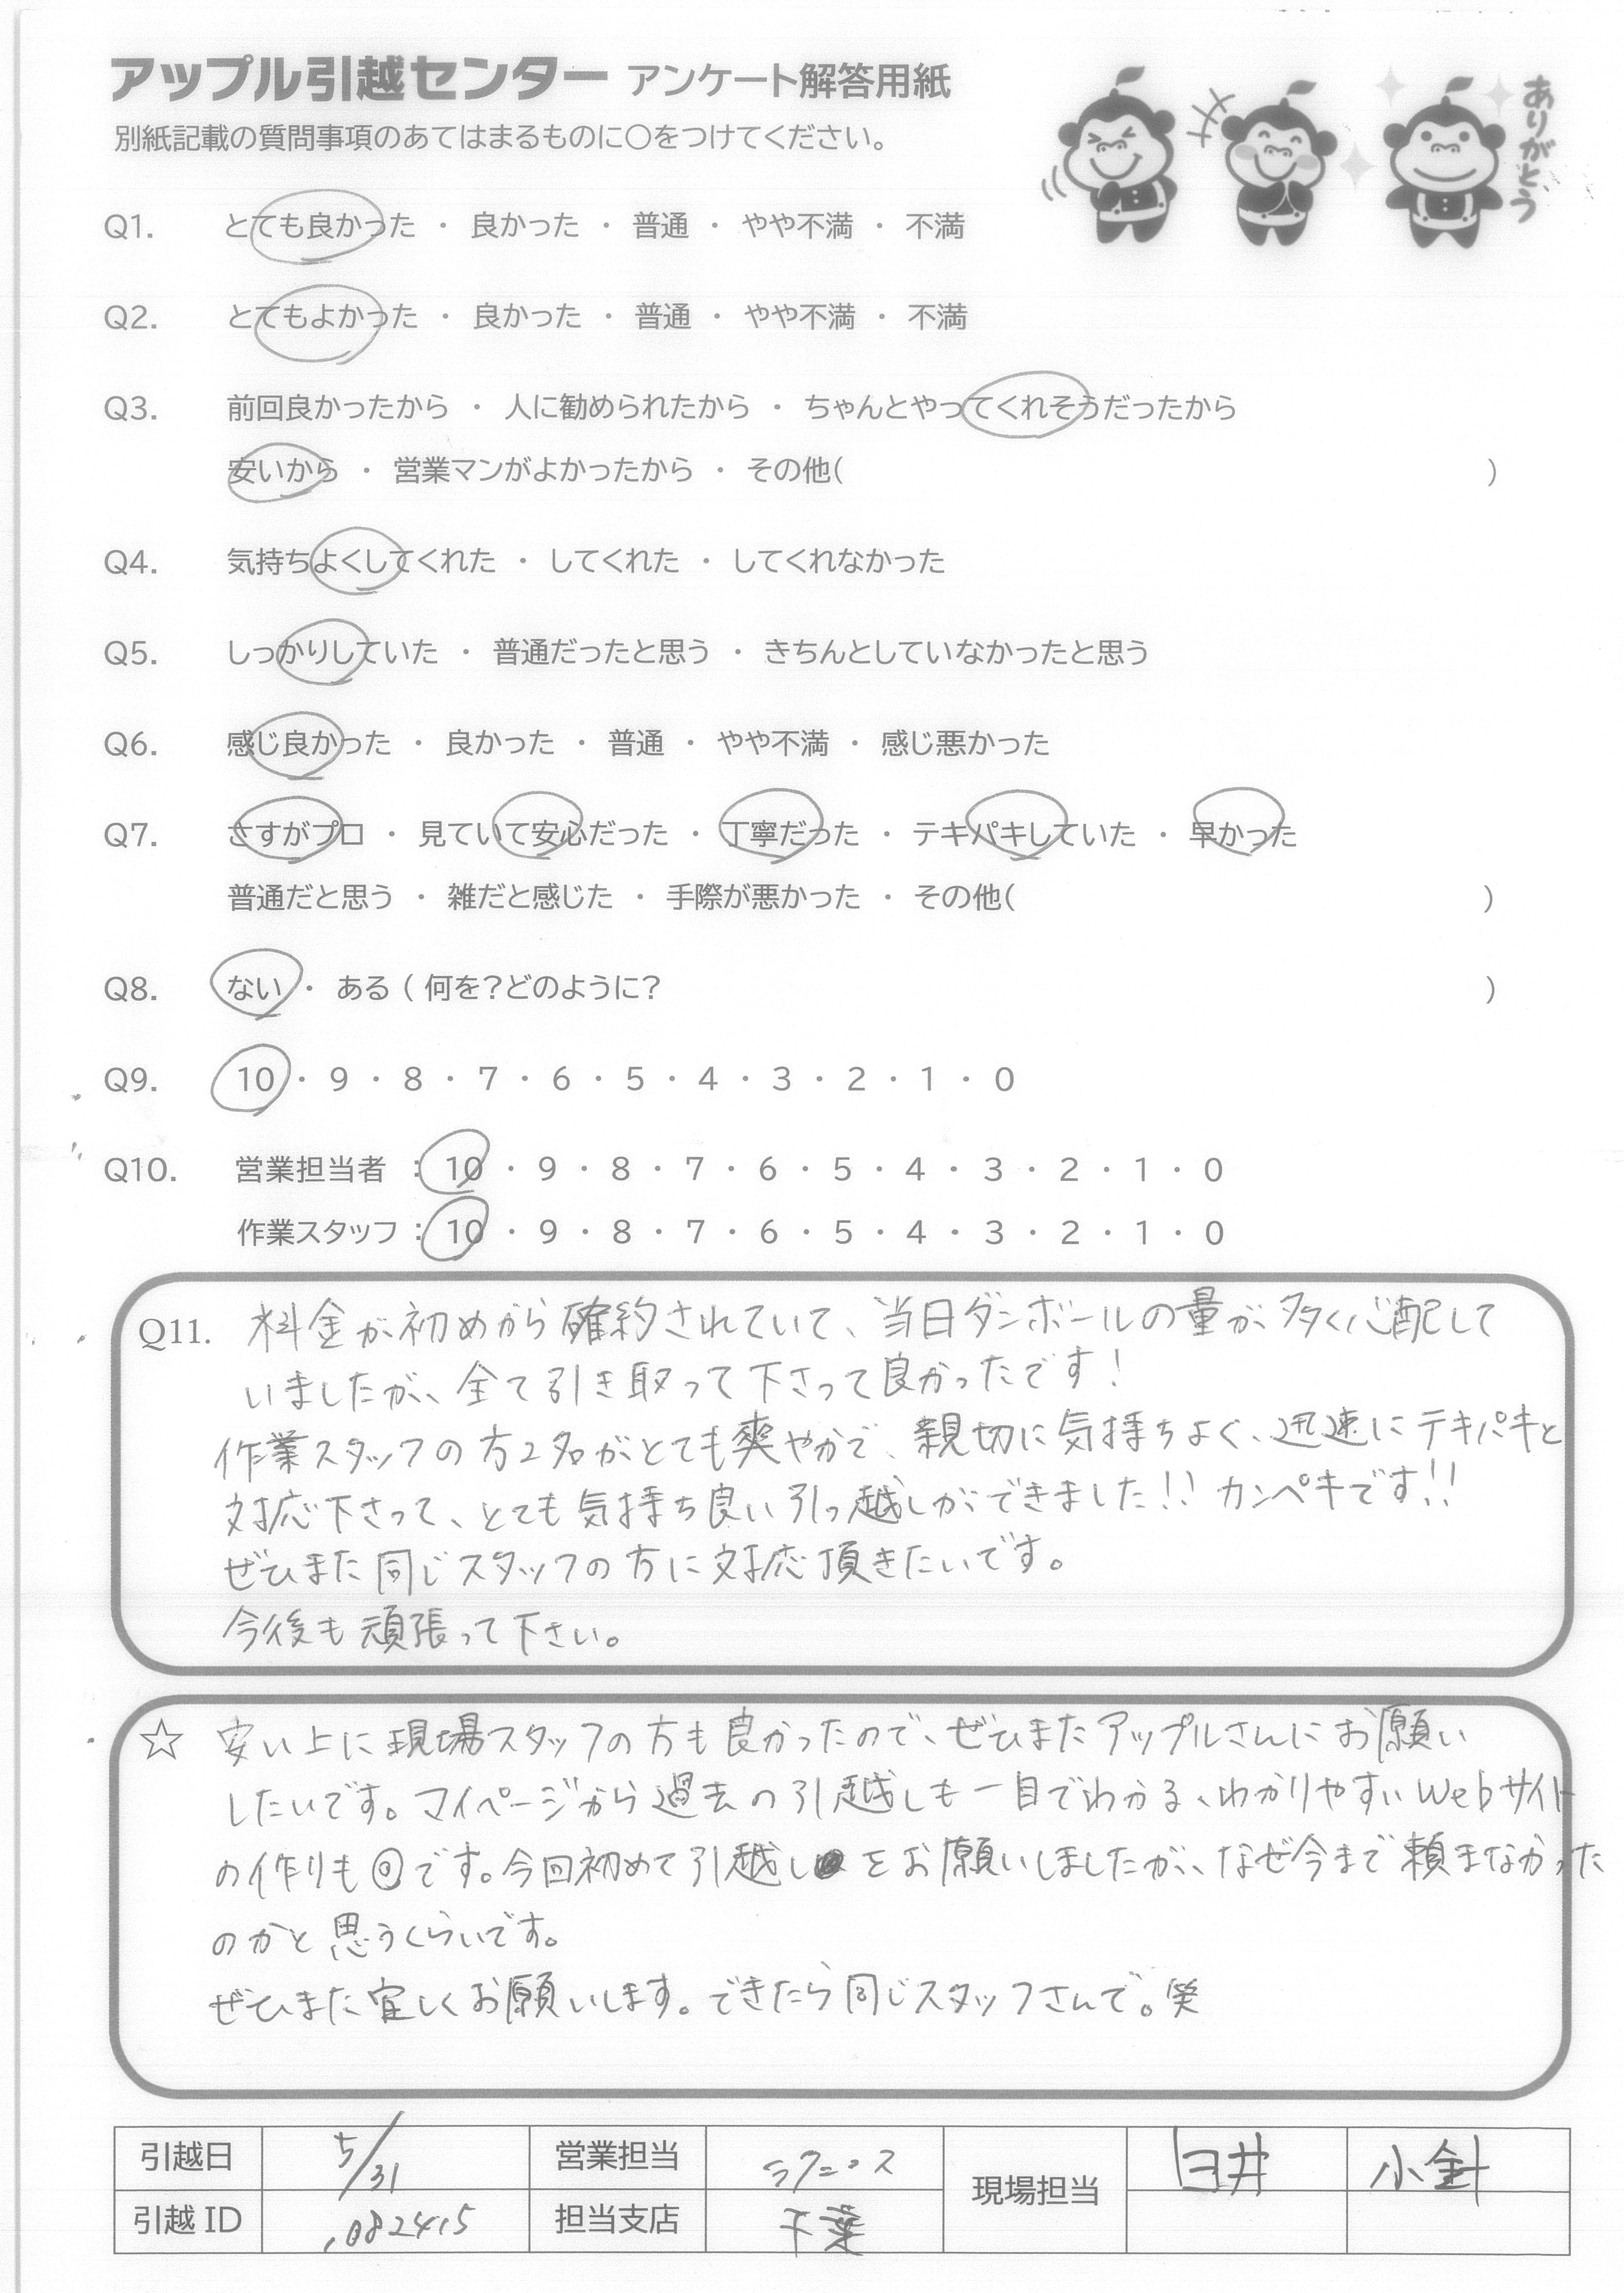 アップル引越センター アンケート解答用紙
別紙記載の質問事項のあてはまるものに〇をつけてください。
ありがとう
Q1. とても良かった ・ 良かった ・ 普通 ・ やや不満 ・ 不満
Q2. とてもよかった ・ 良かった ・ 普通 ・ やや不満 ・ 不満
Q3. 前回良かったから ・ 人に勧められたから ・ ちゃんとやってくれそうだったから
安いから ・ 営業マンがよかったから ・ その他( )
Q4. 気持ちよくしてくれた ・ してくれた ・ してくれなかった
Q5. しっかりしていた ・ 普通だったと思う ・ きちんとしていなかったと思う
Q6. 感じ良かった ・ 良かった ・ 普通 ・ やや不満 ・ 感じ悪かった
Q7. さすがプロ ・ 見ていて安心だった ・ 丁寧だった ・ テキパキしていた ・ 早かった
普通だと思う ・ 雑だと感じた ・ 手際が悪かった ・ その他( )
Q8. ない ・ ある ( 何を?どのように? )
Q9. 10 ・ 9 ・ 8 ・ 7 ・ 6 ・ 5 ・ 4 ・ 3 ・ 2 ・ 1 ・ 0
Q10. 営業担当者 : 10 ・ 9 ・ 8 ・ 7 ・ 6 ・ 5 ・ 4 ・ 3 ・ 2 ・ 1 ・ 0
作業スタッフ : 10 ・ 9 ・ 8 ・ 7 ・ 6 ・ 5 ・ 4 ・ 3 ・ 2 ・ 1 ・ 0
Q11. 料金が初めから確約されていて、当日ダンボールの量が多く心配して
いましたが、全て引き取って下さって良かったです！
作業スタッフの方2名がとても爽やかで、親切に気持ちよく、迅速にテキパキと
対応下さって、とても気持ち良い引っ越しができました!! カンペキです!!
ぜひまた同じスタッフの方に対応頂きたいです。
今後も頑張って下さい。
☆ 安い上に現場スタッフの方も良かったので、ぜひまたアップルさんにお願い
したいです。マイページから過去の引越しも一目でわかる、わかりやすいWebサイト
の作りも◎です。今回初めて引越しをお願いしましたが、なぜ今まで頼まなかった
のかと思うくらいです。
ぜひまた宜しくお願いします。できたら同じスタッフさんで。笑
引越日 5/31 営業担当 現場担当 臼井 小針
引越 ID 082415 担当支店 千葉